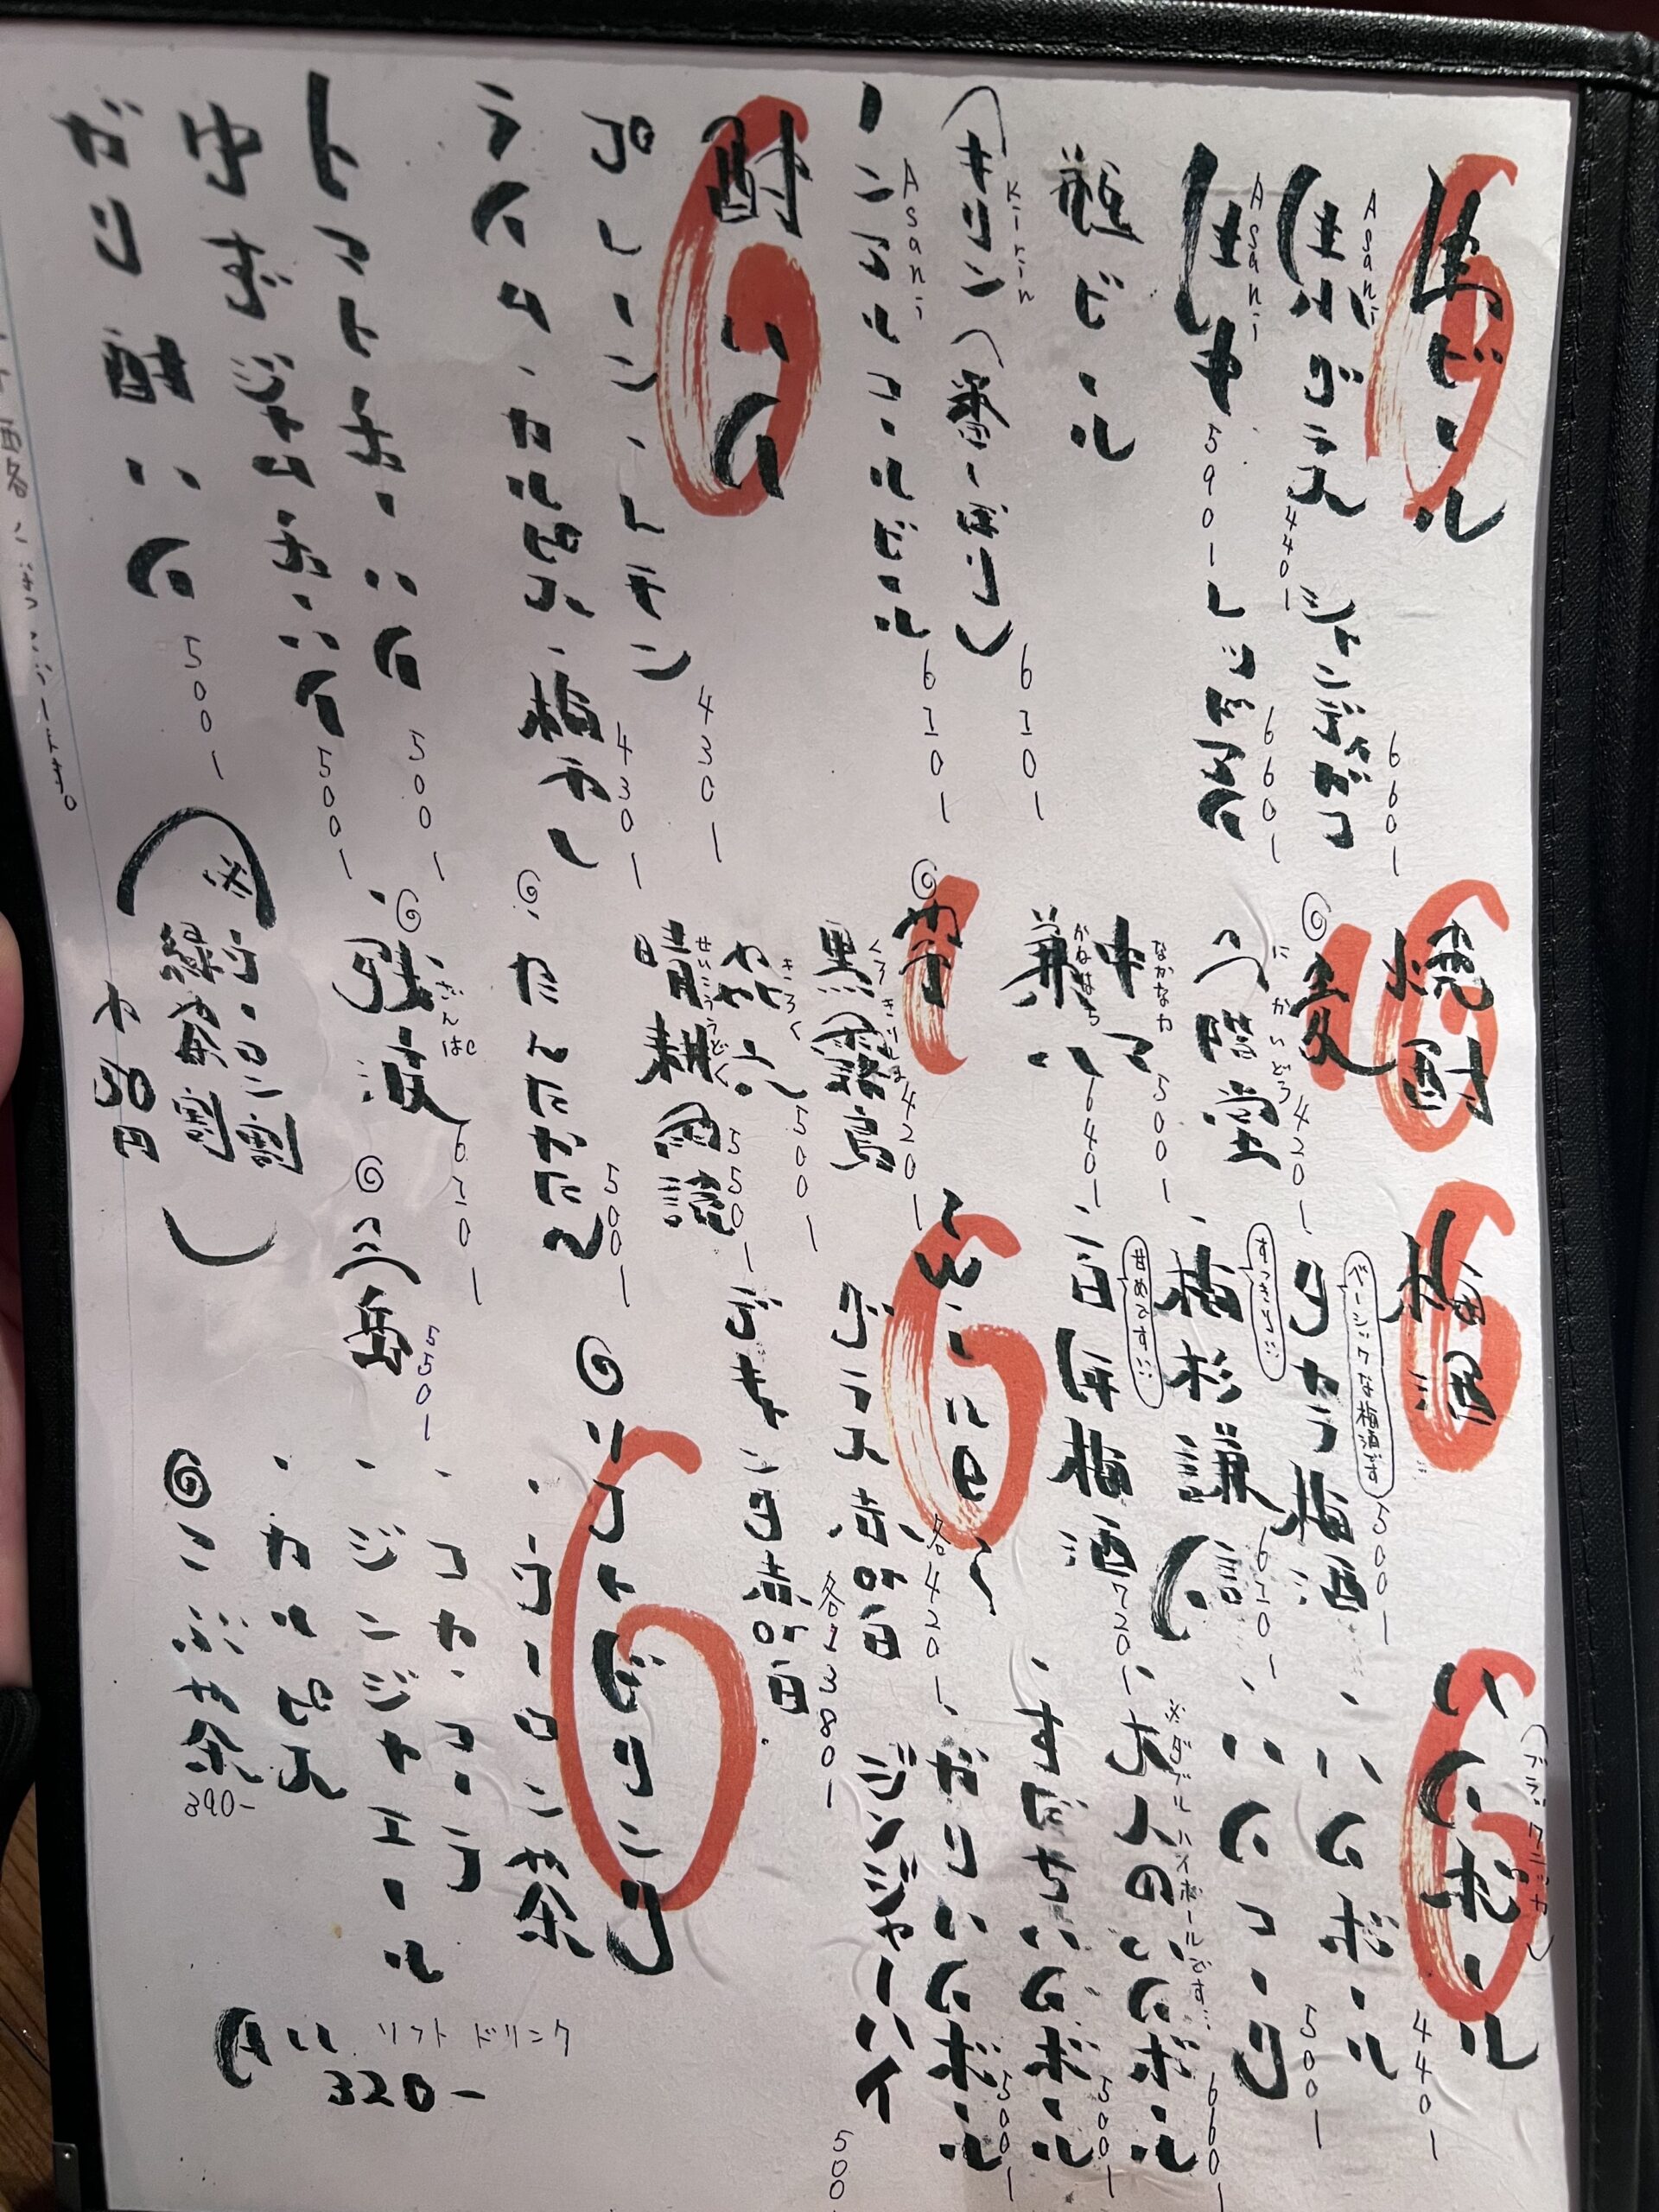 生ビール
Asahi
生小グラス 440-
シャンディガフ 660-
Asahi
生中 590-
レッドアイ 660-
瓶ビール
Kirin
キリン(一番しぼり)
Asahi
ノンアルコールビール
酎ハイ
プレーン・レモン 430-
ライム・カルピス・梅干し 430-
トマトチューハイ 500-
ゆずジャムチューハイ 500-
ガリ酎ハイ 500-
焼酎
麦
にかいどう
二階堂 420-
なかなか
中々 500-
かねはち
兼八 640-
芋
くろきりしま
黒霧島 420-
きろく
㐂六 500-
せいこううどく
晴耕雨読 550-
たんたかたん 500-
ざんぱ
残波
三岳 550-
緑茶割
50円
梅酒
ベーシックな梅酒です
タカラ梅酒 500-
すっぱい
梅杉謙信
甘めです
百年梅酒 720-
わいん
グラス赤or白 各420-
デキャンタ赤or白 各1380-
◎ソフトドリンク
・ウーロン茶
・コカ・コーラ
・ジンジャエール
・カルピス
ソフトドリンク
320-
◎こぶ茶 390-
ハイボール
(ブラックニッカ)
・ハイボール 440-
・ハイコーク 500-
※ダブルハイボールです
・大人のハイボール 660-
・すだちハイボール 500-
・ガリハイボール 500-
ジンジャーハイ 500